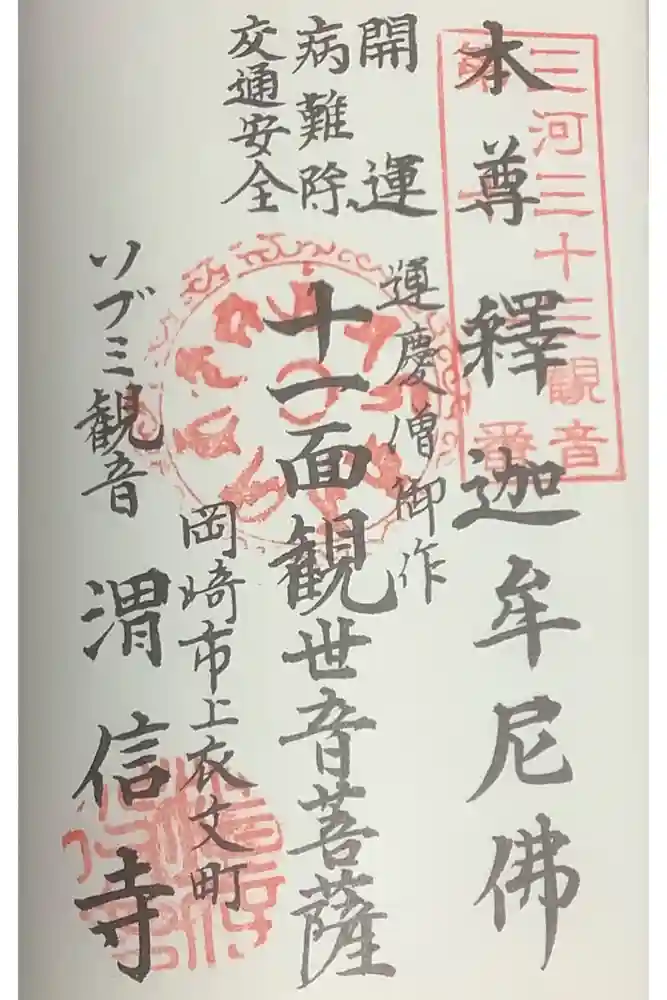 三河三十三観音
第一番
本尊 釋迦牟尼佛
開運
病難除
交通安全
運慶僧御作
十一面観世音菩薩
岡崎市上衣文町
ソブミ観音
渭信寺